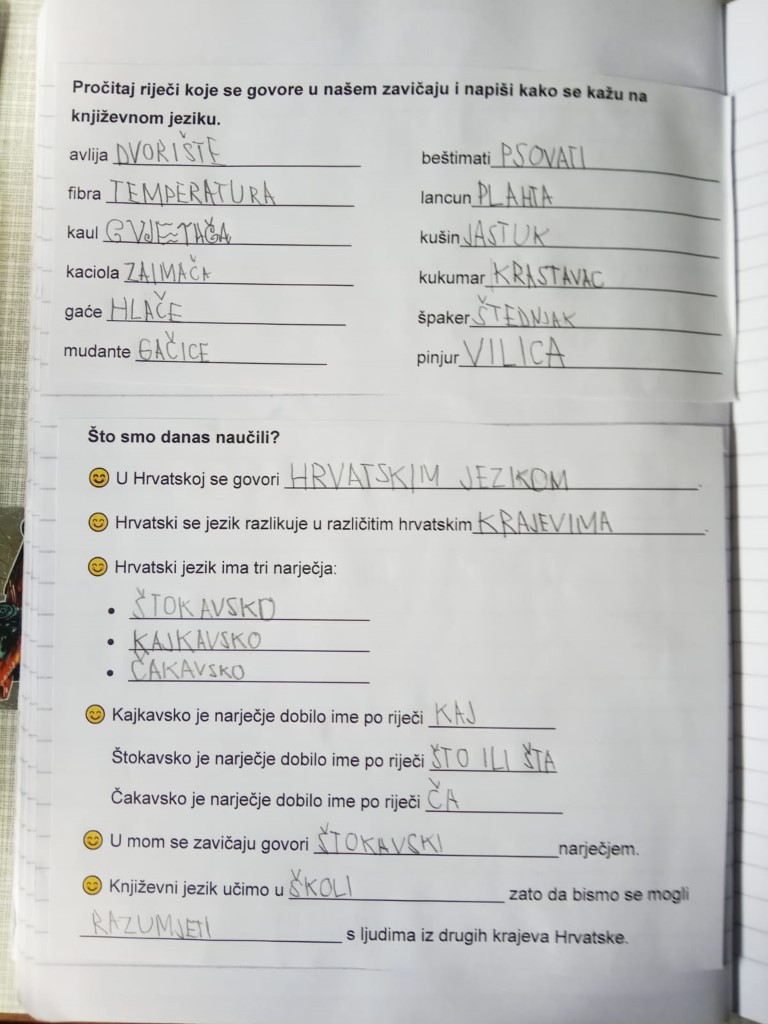 Pročitaj riječi koje se govore u našem zavičaju i napiši kako se kažu na
književnom jeziku.
avlija DVORIŠTE
fibra TEMPERATURA
kaul CVJETAČA
kaciola ZAIMAČA
gaće HLAČE
mudante GAČICE
beštimati PSOVATI
lancun PLAHTA
kušin JASTUK
kukumar KRASTAVAC
špaker ŠTEDNJAK
pinjur VILICA
Što smo danas naučili?
U Hrvatskoj se govori HRVATSKIM JEZIKOM.
Hrvatski se jezik razlikuje u različitim hrvatskim KRAJEVIMA.
Hrvatski jezik ima tri narječja:
• ŠTOKAVSKO
• KAJKAVSKO
• ČAKAVSKO
Kajkavsko je narječje dobilo ime po riječi KAJ
Štokavsko je narječje dobilo ime po riječi ŠTO ILI ŠTA
Čakavsko je narječje dobilo ime po riječi ČA
U mom se zavičaju govori ŠTOKAVSKI narječjem.
Književni jezik učimo u ŠKOLI zato da bismo se mogli
RAZUMJETI s ljudima iz drugih krajeva Hrvatske.